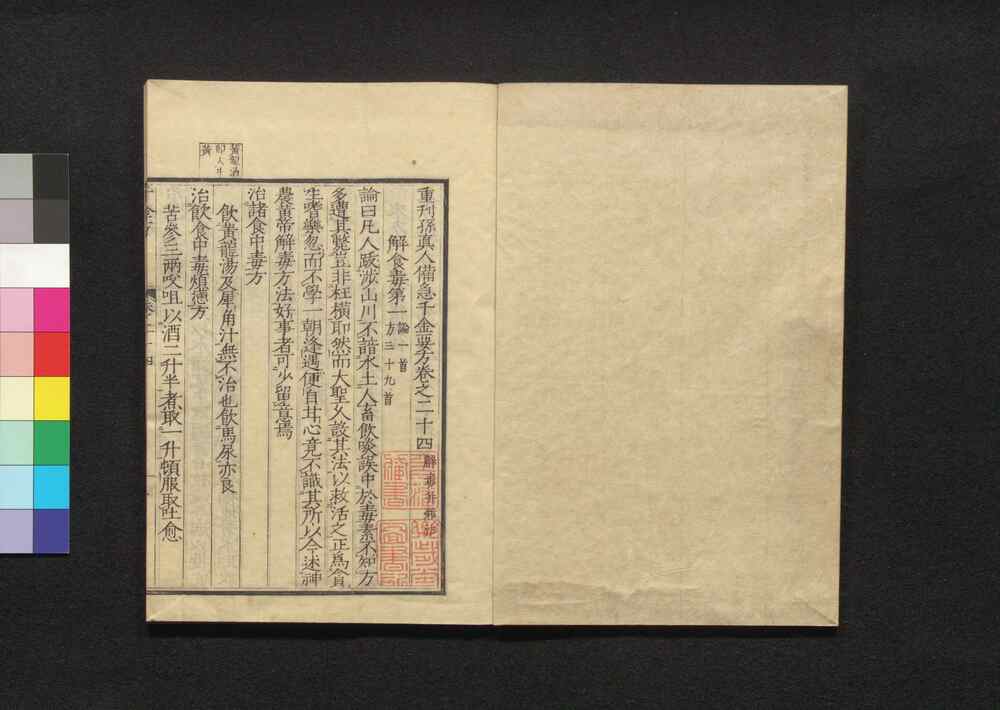 重刊孫真人備急千金要方卷之二十四 解毒并雜治
解食毒第一 論一首 方三十九首
論曰凡人跋涉山川不諳水土人畜飲啖誤中於毒素不知方
多遭其斃豈非枉橫耶然而大聖久設其法以救活之正爲貪
生嗜樂忽而不學一朝逢遇便自甘心竟不識其所以今述神
農黃帝解毒方法好事者可少留意焉
治諸食中毒方
飲黃龍湯及犀角汁無不治也飲馬尿亦良
治飲食中毒煩懣方
苦參三兩㕮咀以酒二升半煮取一升頓服取吐愈
黃龍湯
卽人牛
黃